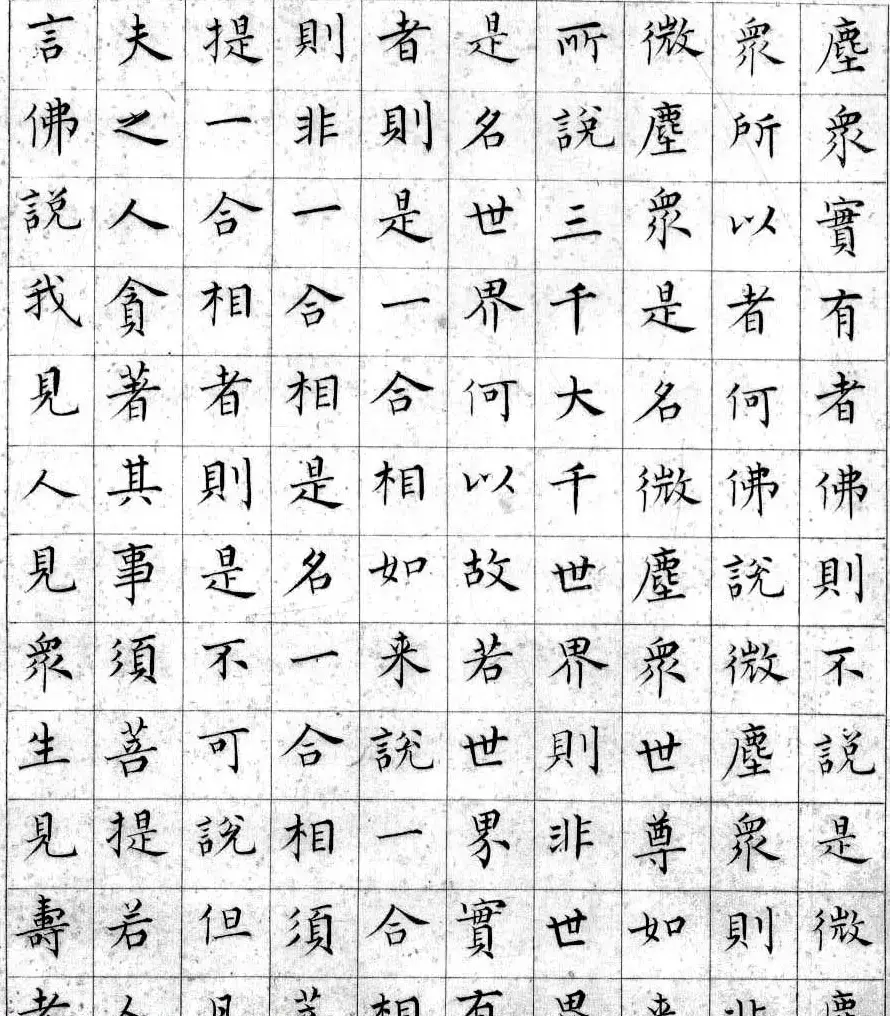 塵衆實有者佛則不說是微塵
衆所以者何佛說微塵衆則非
微塵衆是名微塵衆世尊如来
所說三千大千世界則非世界
是名世界何以故若世界實有
者則是一合相如来說一合相
則非一合相是名一合相須菩
提一合相者則是不可說但凡
夫之人貪著其事須菩提若人
言佛説我見人見衆生見壽者